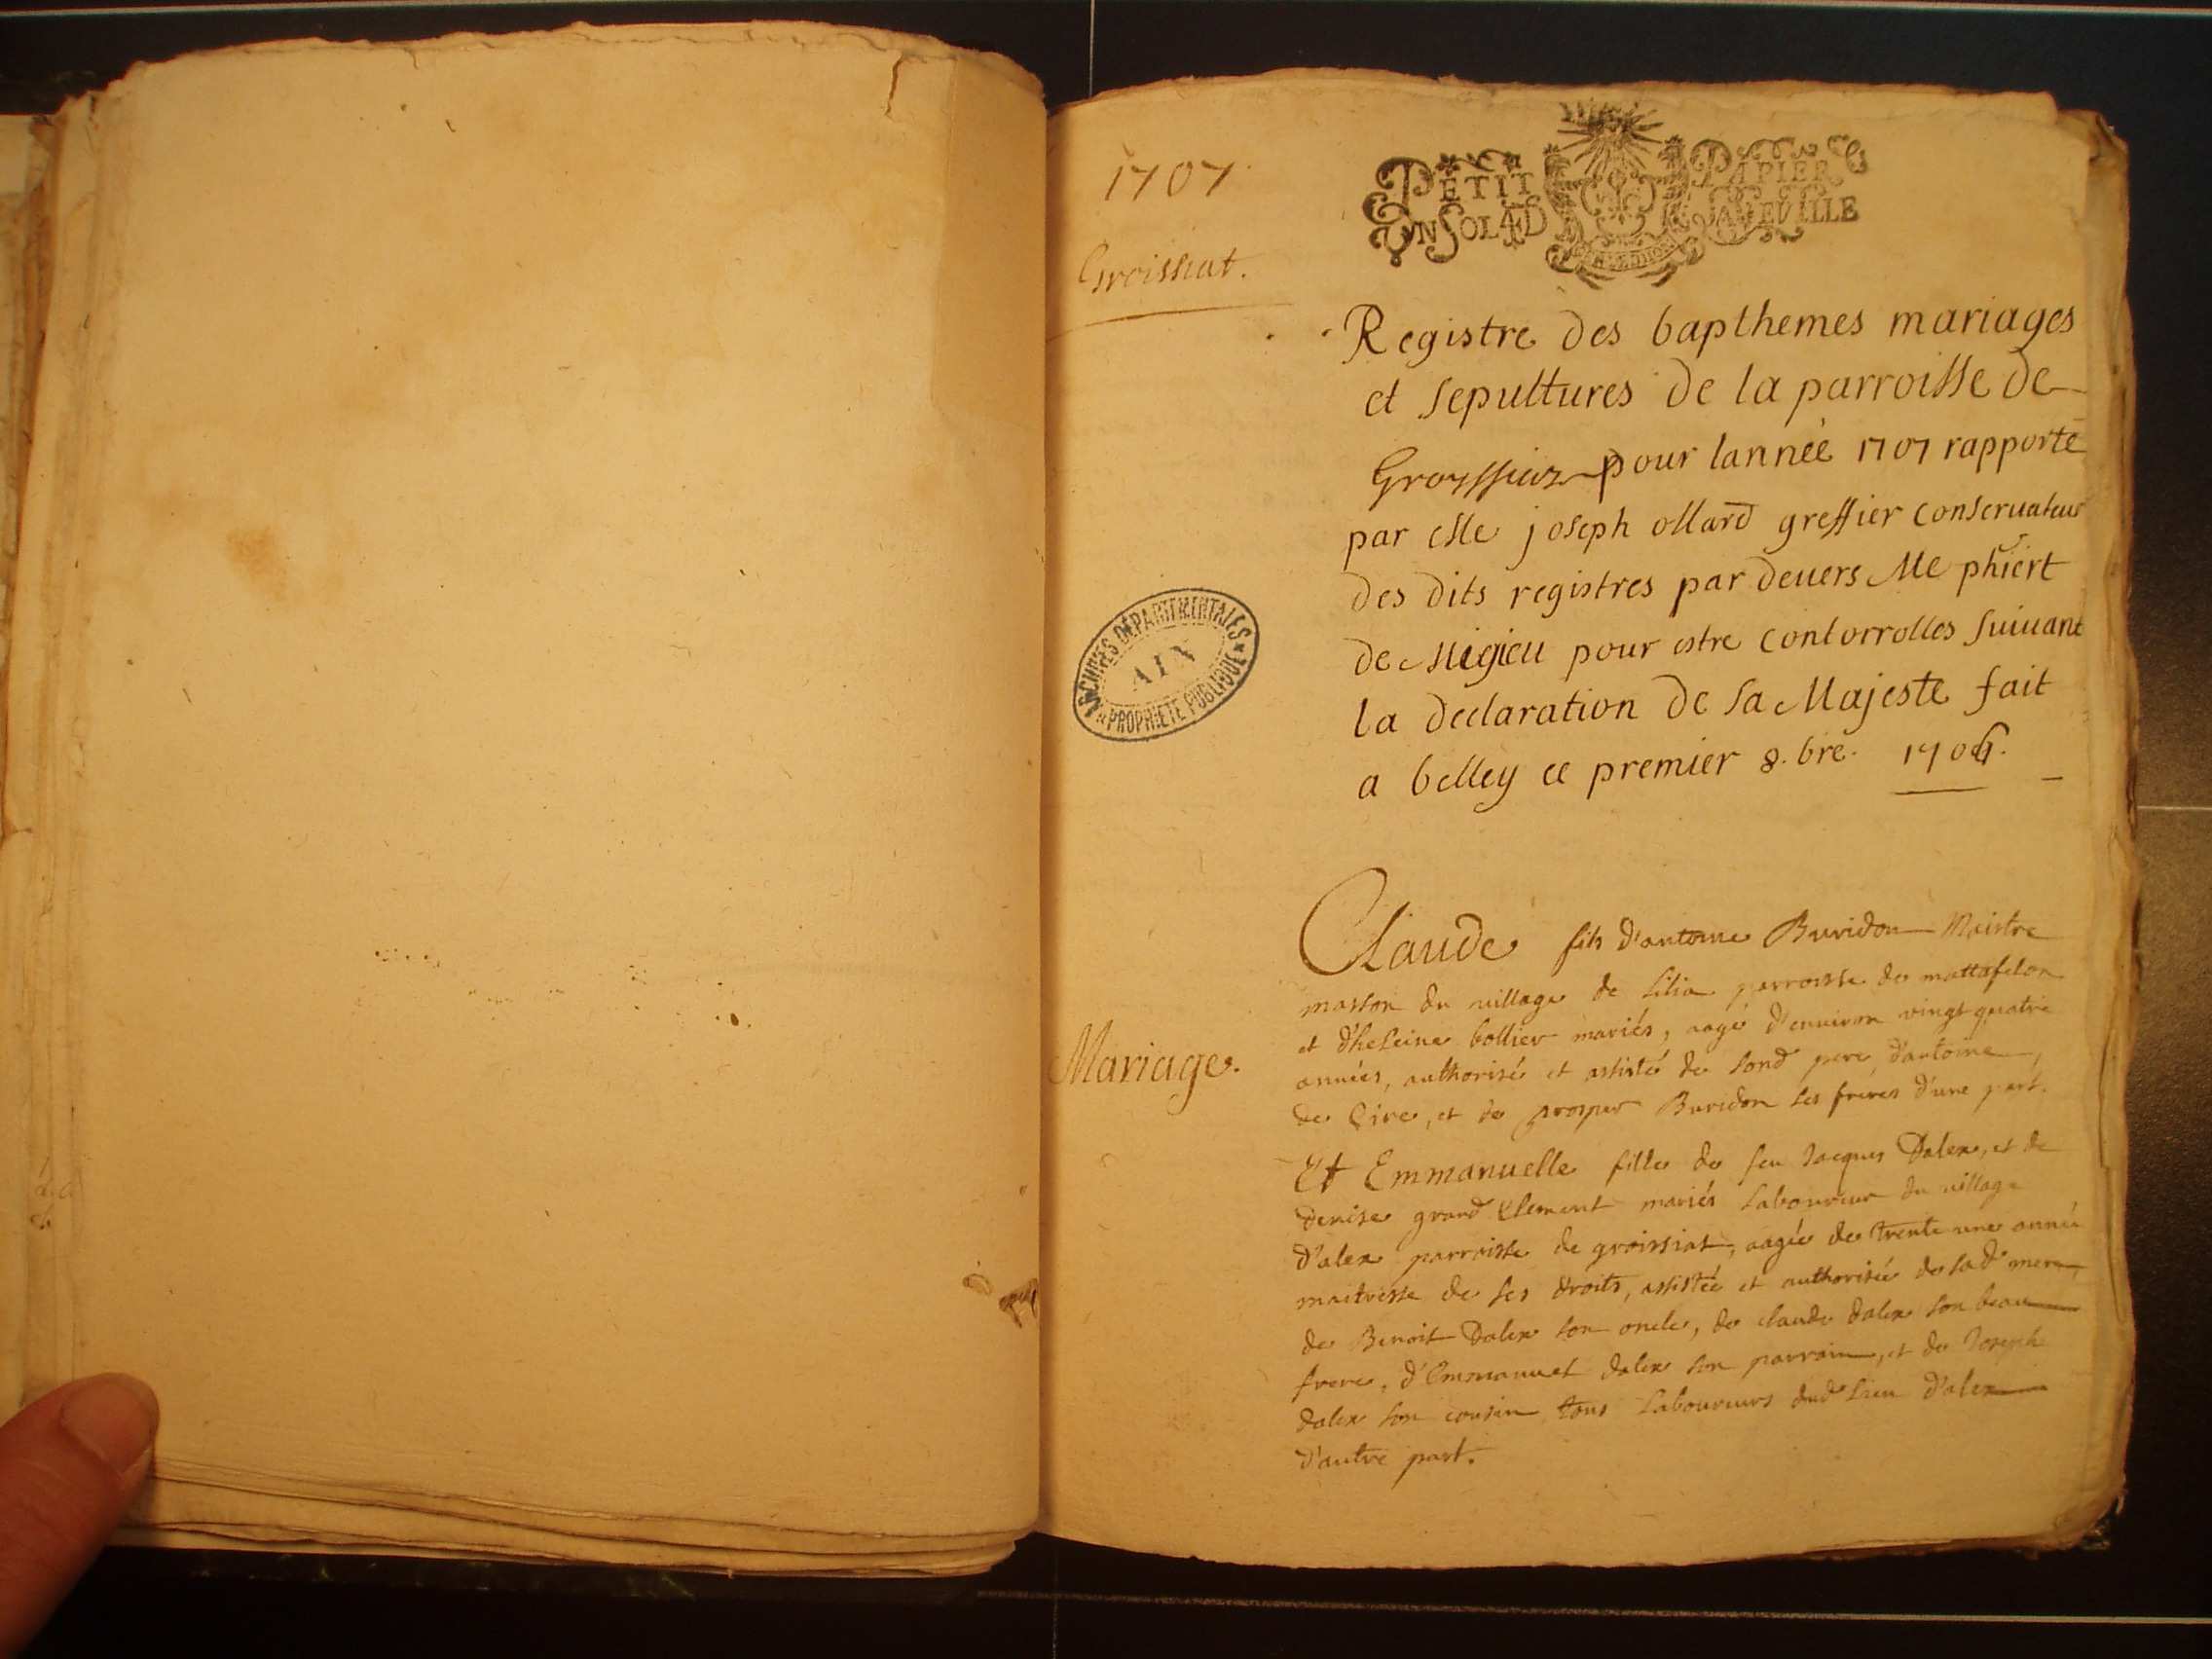 1707
Groissiat.
PETIT PAPIER
UN SOL 4 D LA FEUILLE
Registre des bapthemes mariages
et sepultures de la parroisse de
Groyssiaz pour lannéé 1707 rapporté
par Me joseph ollard greffier conseruateur
des dits registres par deuers Me phiert
de Migieu pour estre contorrolles suiuant
la declaration de sa Majeste fait
a belley ce premier 8.bre. 1706.
ARCHIVES DÉPARTEMENTALES
AIN
PROPRIÉTÉ PUBLIQUE
Mariage.
Claude fils d'antoine Buridon Maistre
masson du village de Silia parroisse de mattafelon
et d'heleine bollier mariés, aagé d'enuiron vingt quatre
années, authorisé et assisté de sond pere d'antoine,
de Cire, et de prosper Buridon ses freres d'une part.
Et Emmanuelle fille de feu Jacques Dalex, et de
denise grand Clement mariés Laboureur du village
d'alex parroisse de groissiat, aagée de trente une année
maitresse de ses droits, assistée et authorisée de sad mere,
de Benoit Dalex son oncle, de claude dalex son beau
frere, d'Emmanuel dalex son parrain, et de Joseph
dalex son cousin tous Laboureurs dud lieu d'alex
d'autre part.